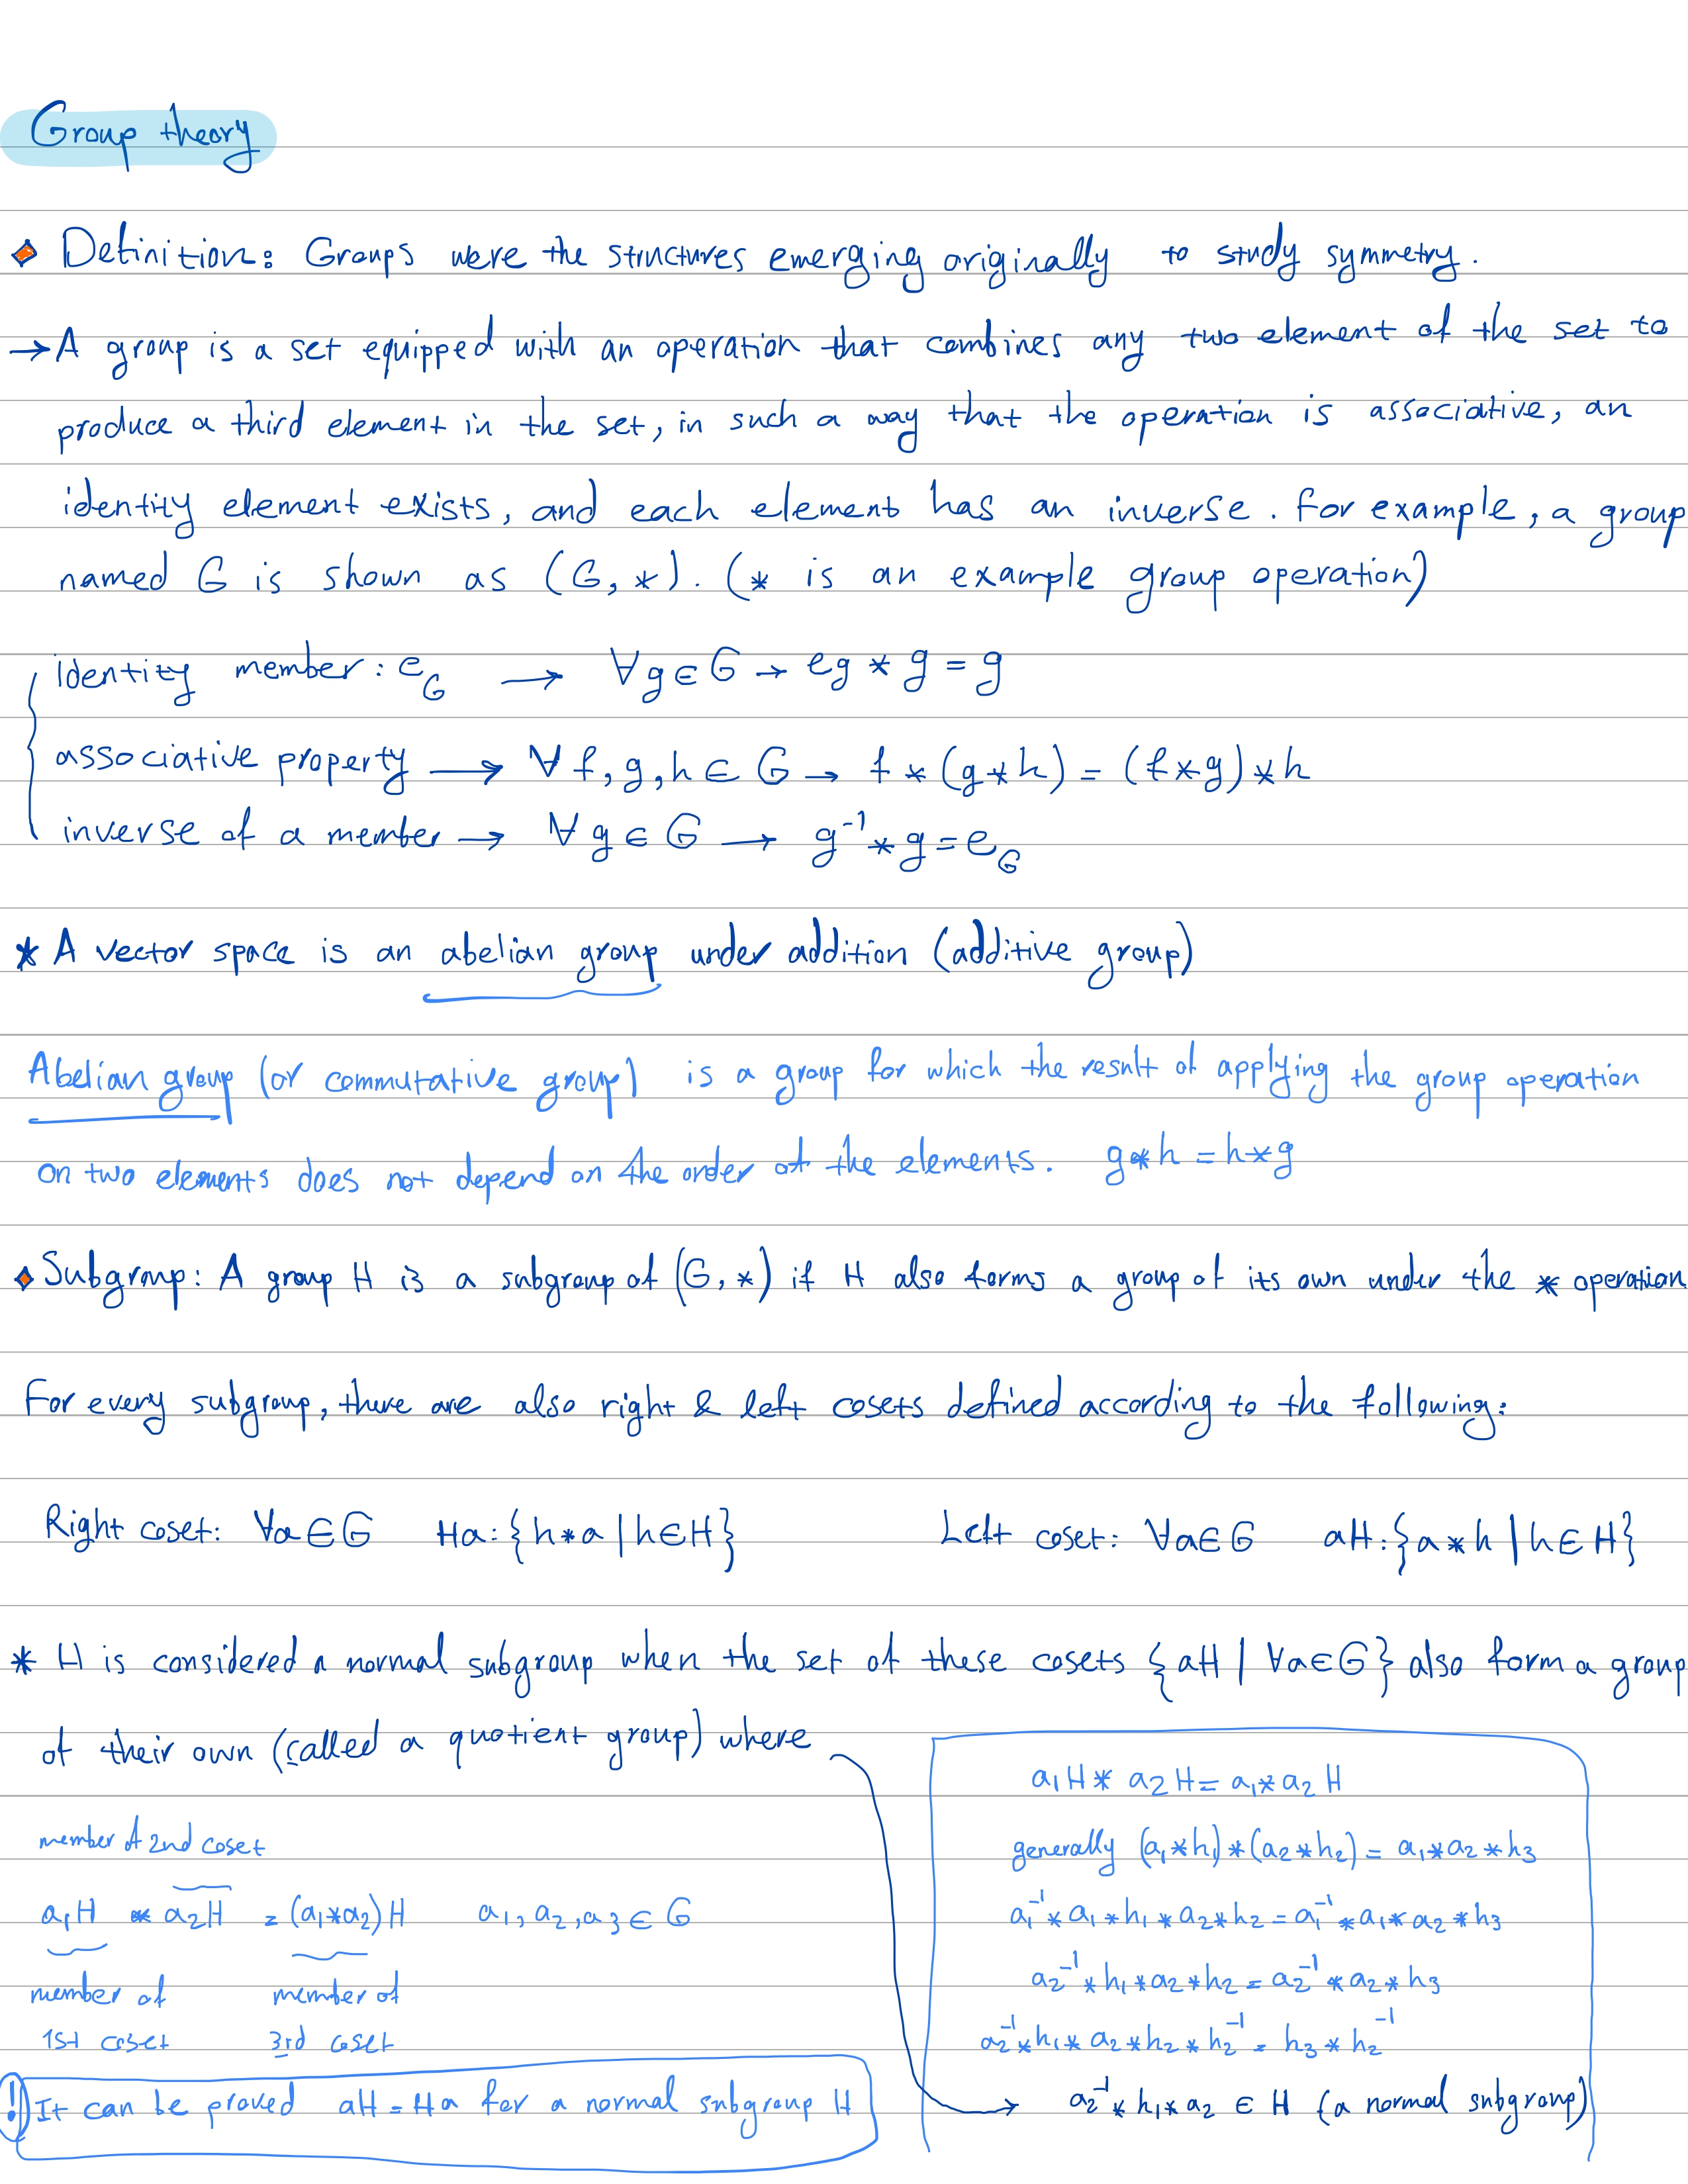 Group theory
Definition: Groups were the structures emerging originally to study symmetry.
→ A group is a set equipped with an operation that combines any two element of the set to
produce a third element in the set, in such a way that the operation is associative, an
identity element exists, and each element has an inverse. For example, a group
named G is shown as (G, *). (* is an example group operation)
identity member: e_G → ∀g∈G → eg * g = g
associative property → ∀f,g,h∈G → f*(g*h) = (f*g)*h
inverse of a member → ∀g∈G → g⁻¹*g = e_G
* A vector space is an abelian group under addition (additive group)
Abelian group (or commutative group) is a group for which the result of applying the group operation
on two elements does not depend on the order of the elements. g*h = h*g
Subgroup: A group H is a subgroup of (G, *) if H also forms a group of its own under the * operation
For every subgroup, there are also right & left cosets defined according to the following:
Right coset: ∀a∈G Ha:{h*a | h∈H} Left coset: ∀a∈G aH:{a*h | h∈H}
* H is considered a normal subgroup when the set of these cosets {aH | ∀a∈G} also form a group
of their own (called a quotient group) where
member of 2nd coset
a₁H * a₂H = (a₁*a₂)H a₁,a₂,a₃∈G
member of member of
1st coset 3rd coset
! It can be proved aH = Ha for a normal subgroup H
a₁H * a₂H = a₁*a₂H
generally (a₁*h₁)*(a₂*h₂) = a₁*a₂*h₃
a₁⁻¹*a₁*h₁*a₂*h₂ = a₁⁻¹*a₁*a₂*h₃
a₂⁻¹*h₁*a₂*h₂ = a₂⁻¹*a₂*h₃
a₂⁻¹*h₁*a₂*h₂*h₂⁻¹ = h₃*h₂⁻¹
→ a₂⁻¹*h₁*a₂ ∈ H (a normal subgroup)